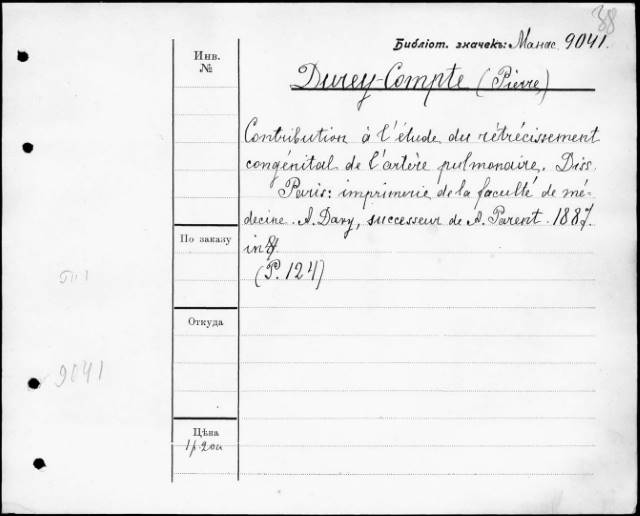 38
Библіот. значекъ: Манас. 9041.
Инв.
№
Durey-Compte (Pierre,)
Contribution à l'étude du rétrécissement
congénital de l'artère pulmonaire. Diss.
Paris: imprimerie de la faculté de mé-
decine. A. Davy, successeur de A. Parent. 1887.
По заказу
in 4
(P. 124)
Откуда
9041
Цѣна
1р. 20к